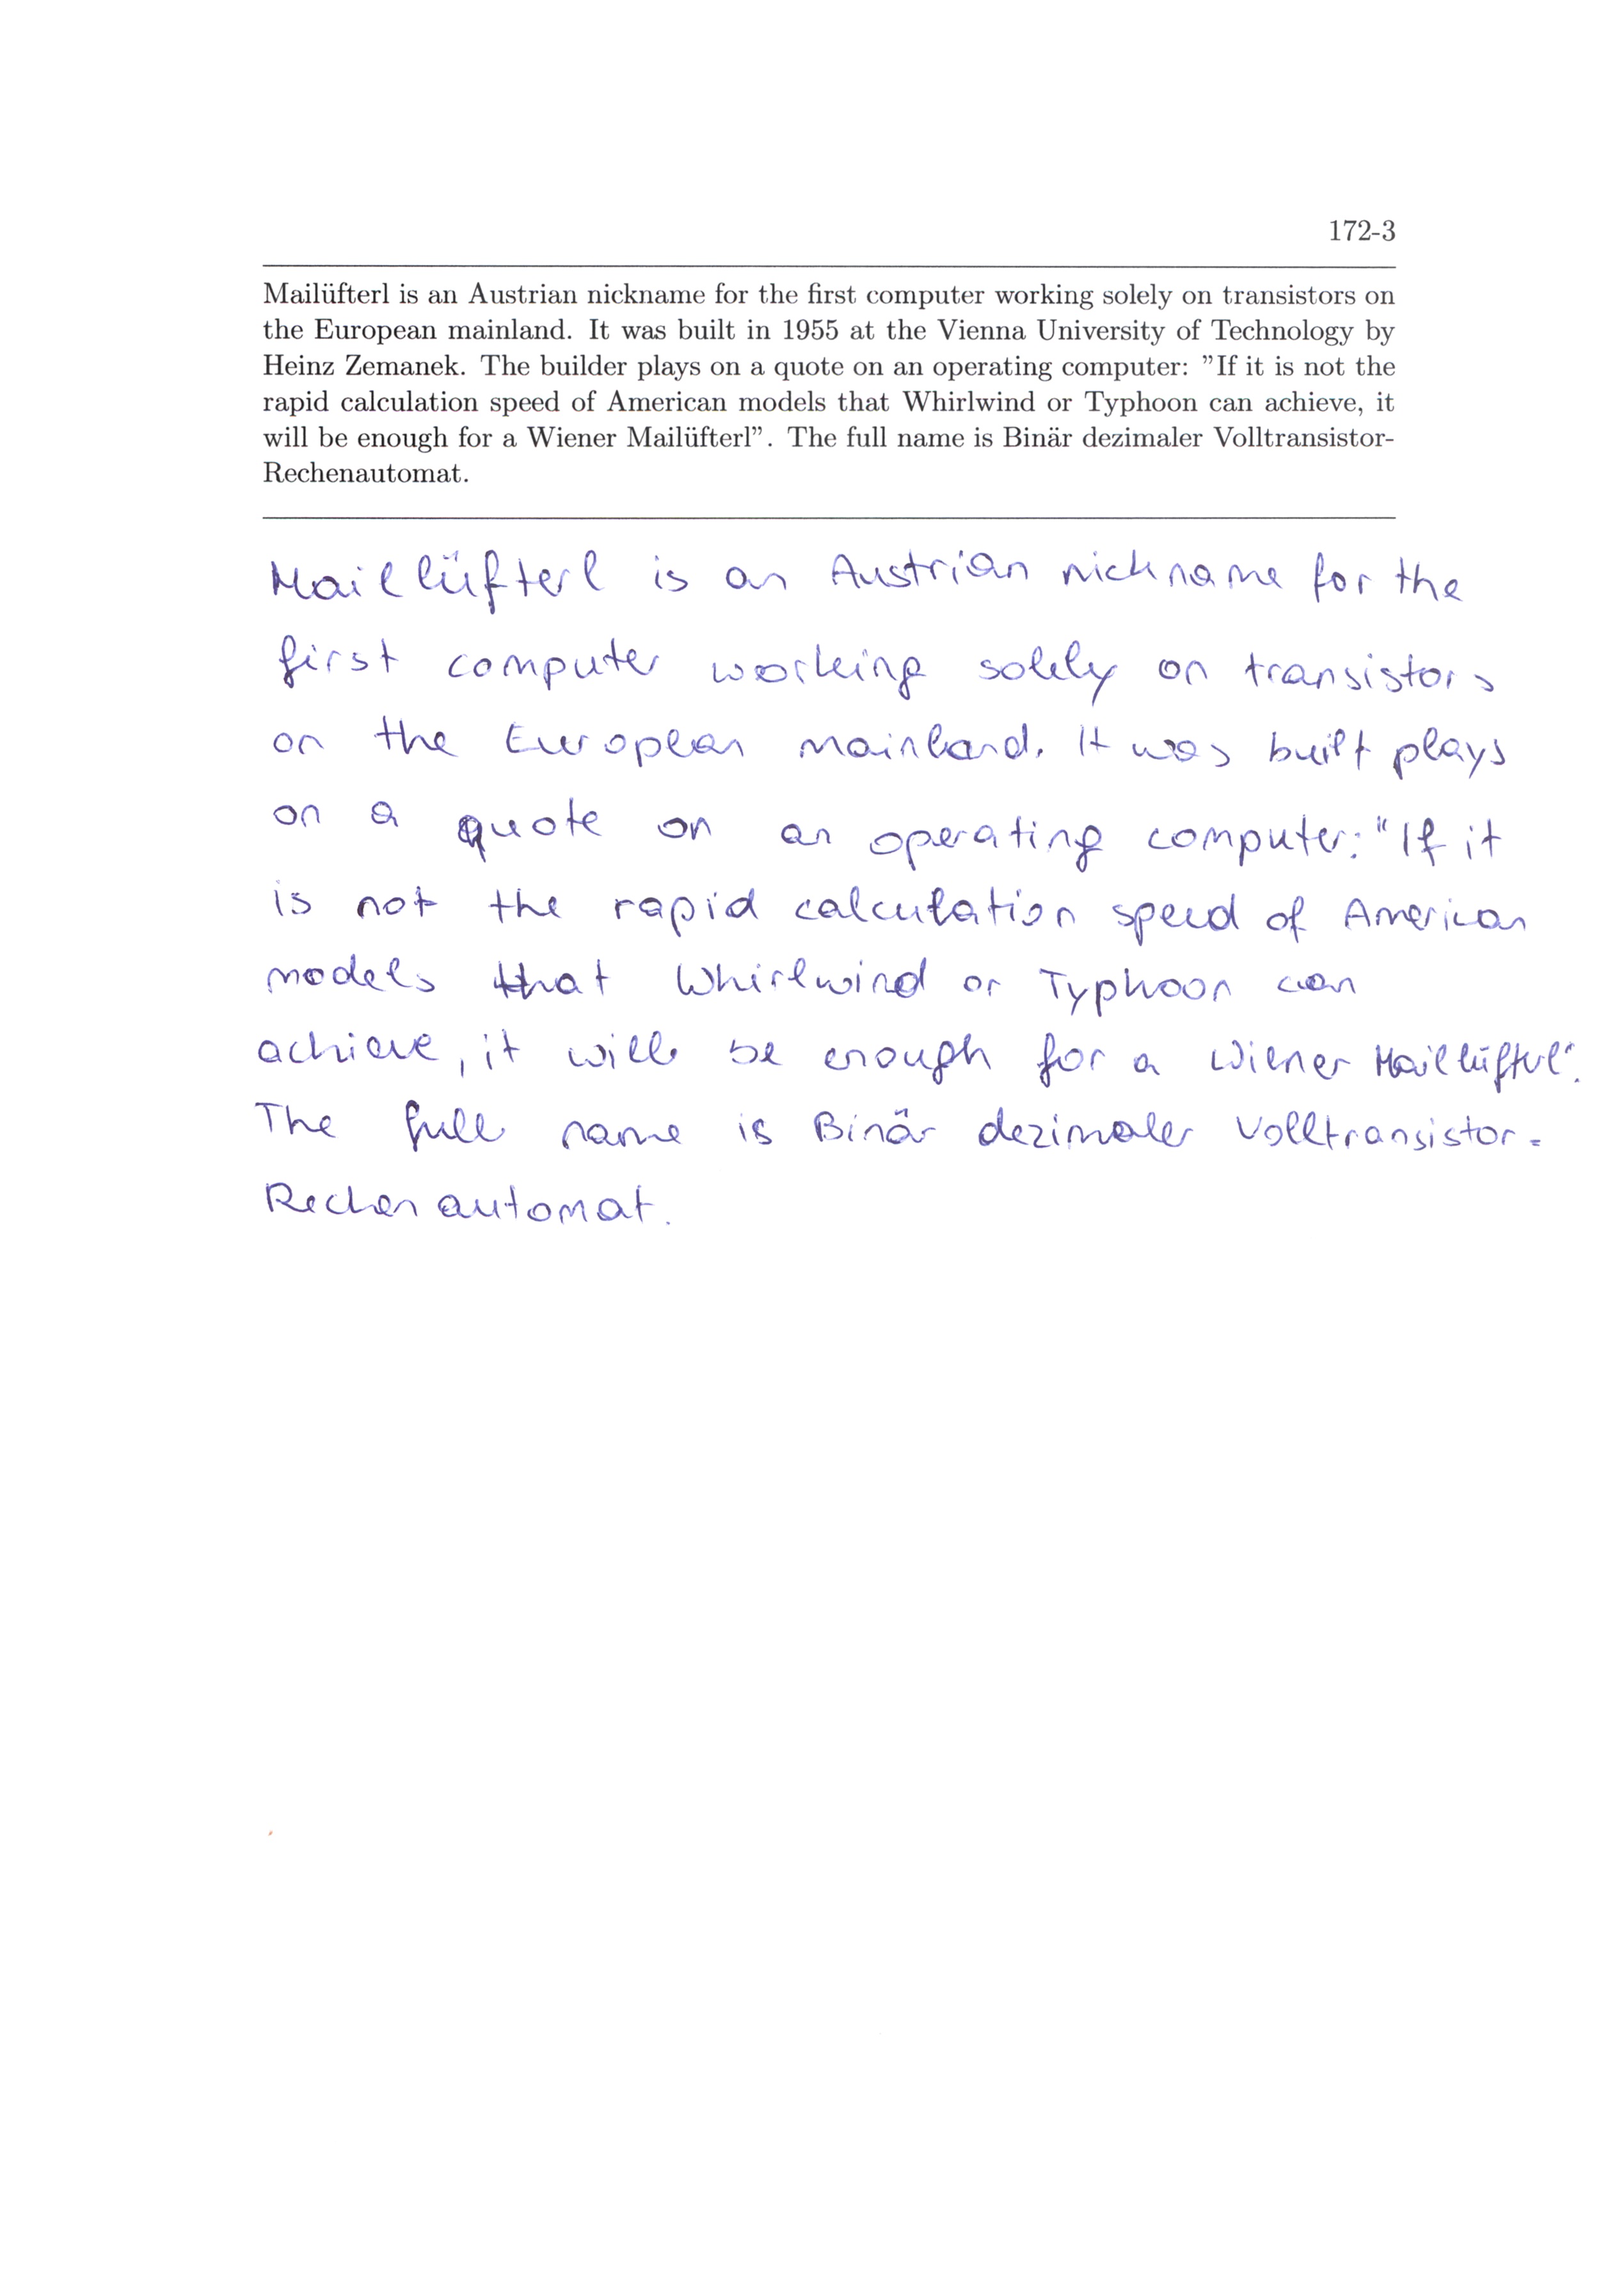 172-3
Mailüfterl is an Austrian nickname for the first computer working solely on transistors on
the European mainland. It was built in 1955 at the Vienna University of Technology by
Heinz Zemanek. The builder plays on a quote on an operating computer: ”If it is not the
rapid calculation speed of American models that Whirlwind or Typhoon can achieve, it
will be enough for a Wiener Mailüfterl”. The full name is Binär dezimaler Volltransistor-
Rechenautomat.
Maillüfterl is an Austrian nickname for the
first computer working solely on transistors
on the European mainland. It was built plays
on a quote on an operating computer: "If it
is not the rapid calculation speed of American
models that Whirlwind or Typhoon can
achieve, it will be enough for a Wiener Maillüfterl".
The full name is Binär dezimaler Volltransistor-
Rechenautomat.